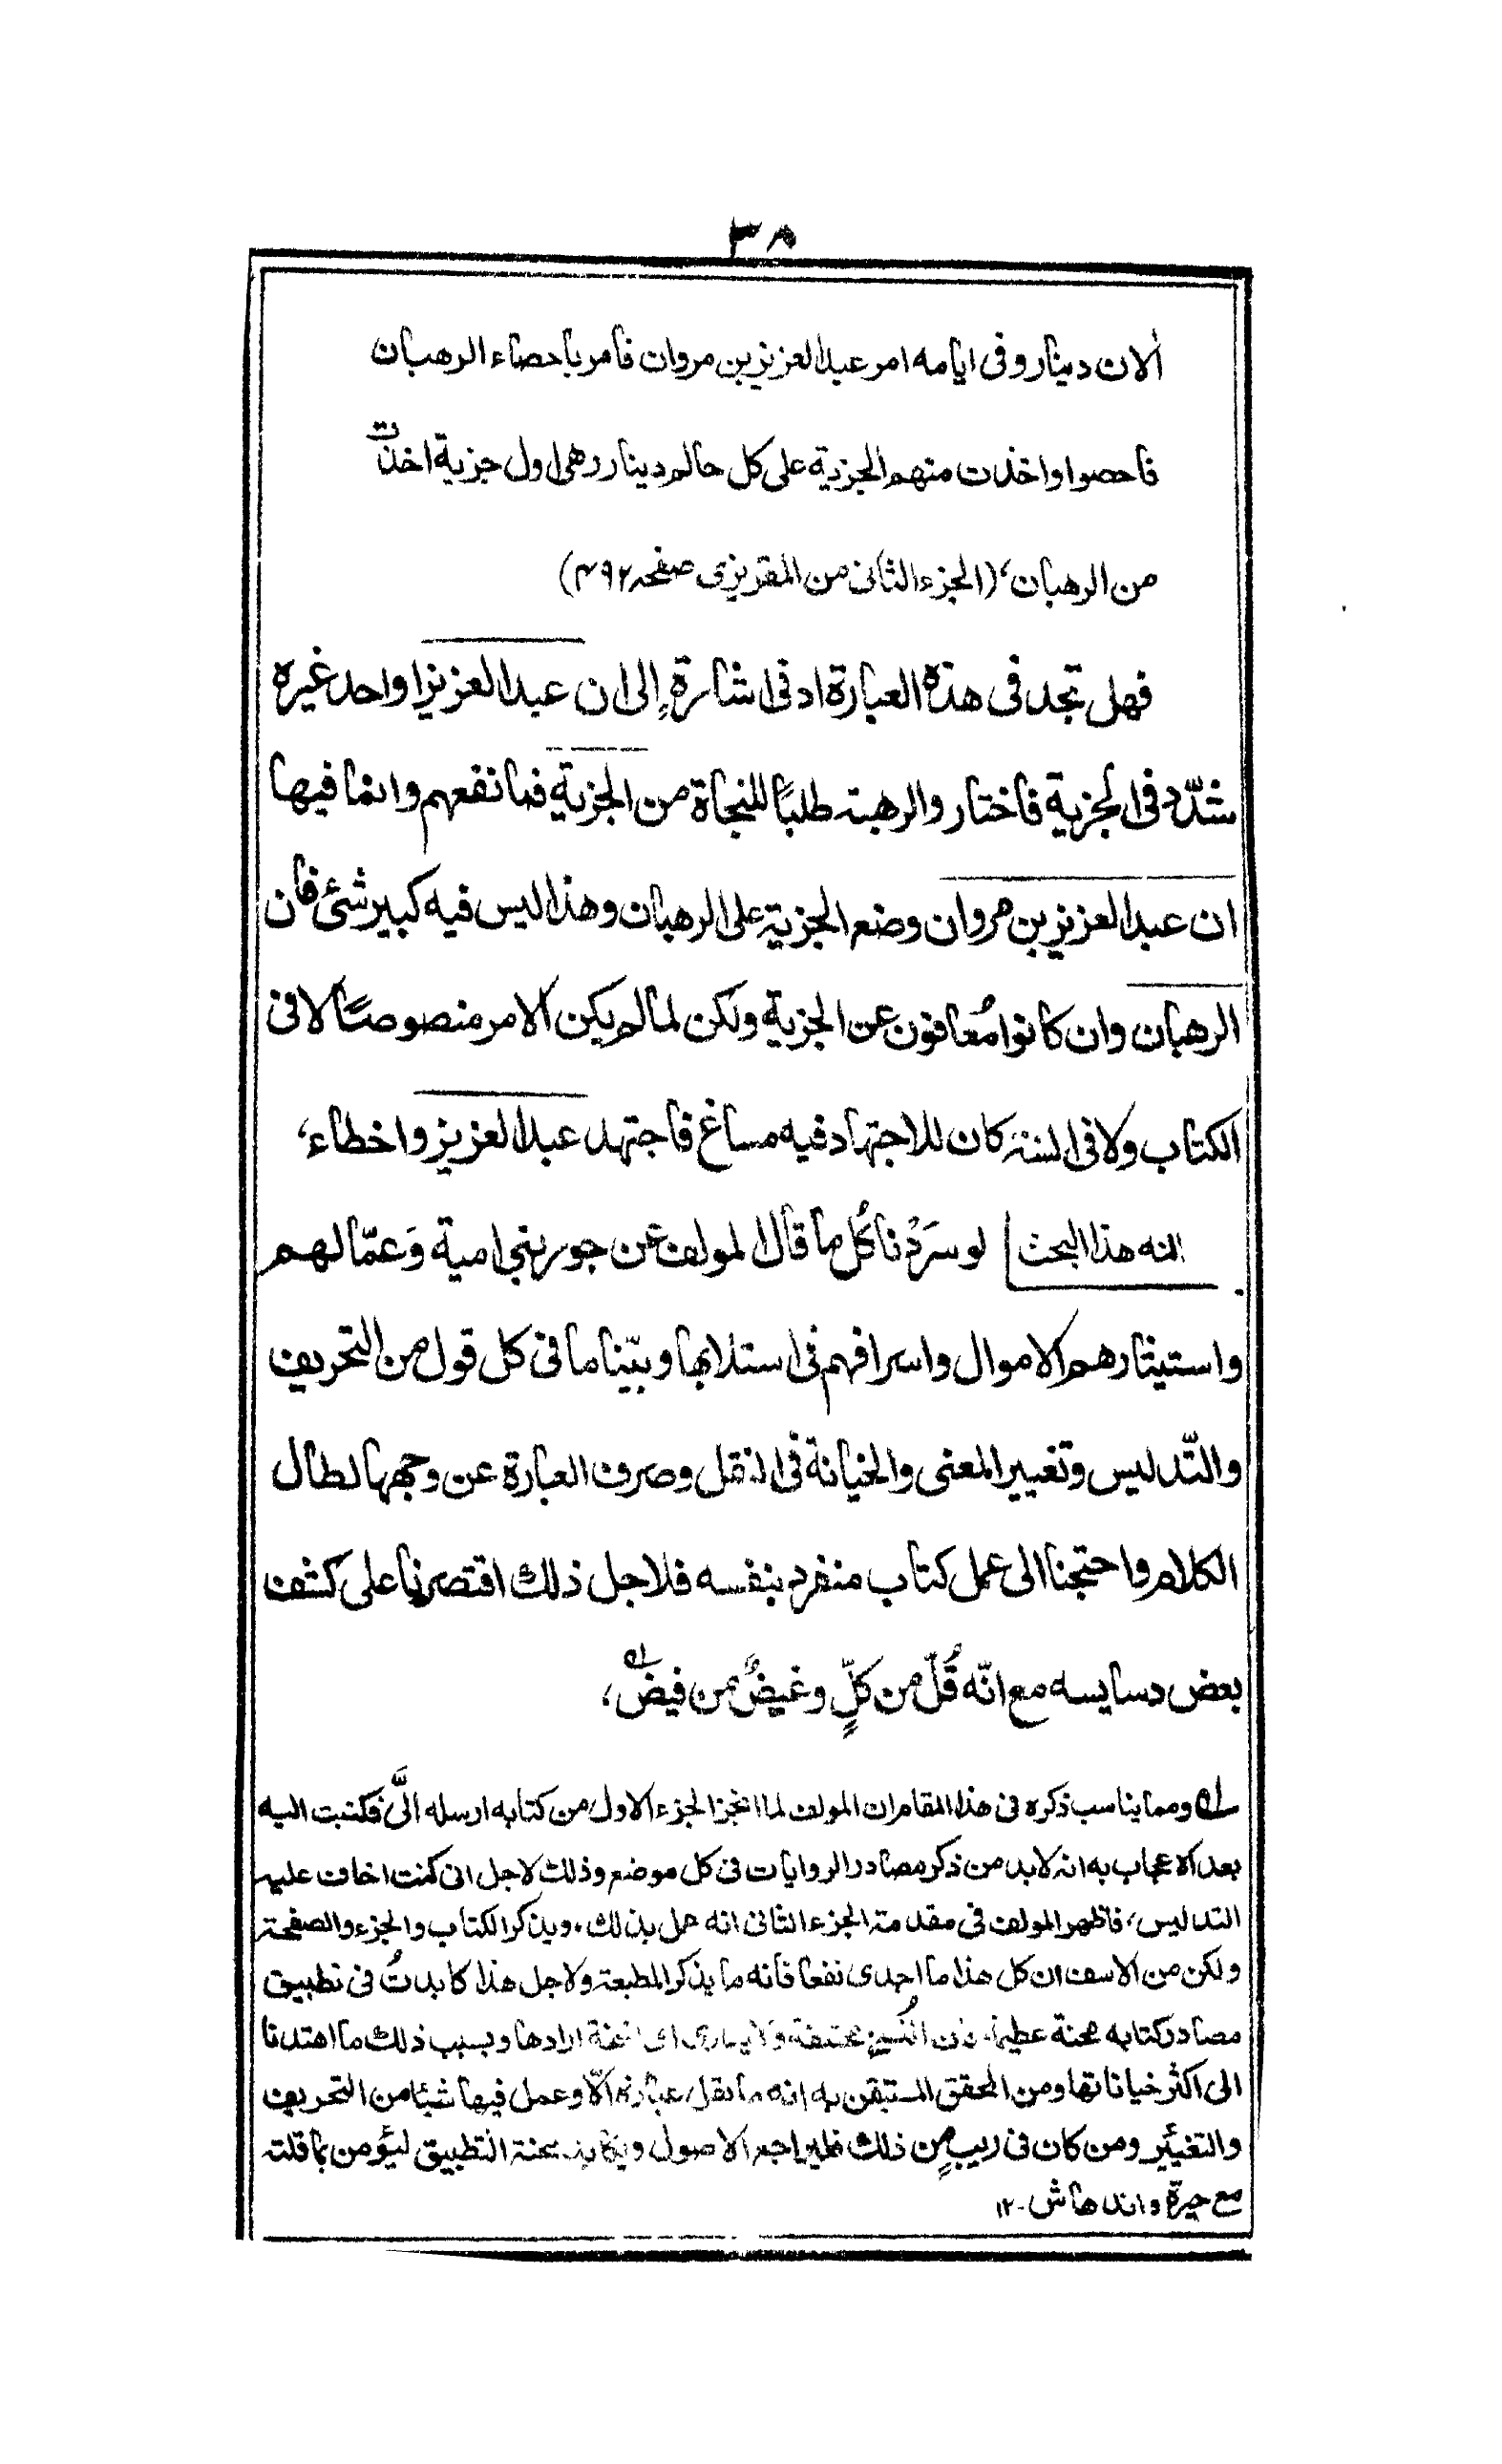 ٣٨
ألان دينار وفى ايامه امر عبد العزيز بن مروان فامر باحصاء الرهبان
فاحصوا واخذت منهم الجزية على كل حالم دينار رهى اول جزية اخذت
من الرهبان، (الجزء الثانى من المقريزى صفحه ٤٩٢)
فهل تجد فى هذه العبارة ادنى اشارة إلى ان عبد العزيز او احد غيره
شدّد فى الجزية فاختار والرهبة طلبًا للنجاة من الجزية فما نفعهم وانما فيها
ان عبد العزيز بن مروان وضع الجزية على الرهبان وهذا ليس فيه كبير شئ فان
الرهبان وان كانوا مُعافون عن الجزية ولكن لما لم يكن الامر منصوصًا لا فى
الكتاب ولا فى السنة كان للاجتهاد فيه مساغ فاجتهد عبد العزيز واخطاء،
لنه هذا البحث لو سَرَدْنا كُل ما قال المولف عن جور بنى امية وَعمّالهم
واستيثارهم الاموال واسرافهم فى استلابها وبيّنا ما فى كل قول من التحريف
والتّدليس وتغيير المعنى والخيانة فى النقل وصرف العبارة عن وجهها لطال
الكلام واحتجنا الى عمل كتاب منفرد بنفسه فلاجل ذلك اقتصرنا على كشف
بعض دسايسه مع انّه قُلّ من كلٍّ وغيضٌ من فيض له،
له ومما يناسب ذكره فى هذا المقام ان المولف لما انجز الجزء الاول من كتابه ارسله الىَّ فكتبت اليه
بعد الاعجاب به انه لابد من ذكر مصادر الروايات فى كل موضع وذلك لاجل انى كنت اخاف عليه
التدليس، فاظهر المولف فى مقدمة الجزء الثانى انه عمل بذلك. ويذكر الكتاب والجزء والصفحة
ولكن من الاسف ان كل هذا ما اجدى نفعا فانه ما يذكر المطبعة ولاجل هذا كابدتُ فى تطبيق
مصادر كتابه محنة عظيمة فان النُسخ مختلفة ولا يدرى اى نسخة ارادها وبسبب ذلك ما اهتدنا
الى اكثر خياناتها ومن المحقق المستيقن به انه ما نقل عبارة الّا وعمل فيها شيئا من التحريف
والتغيير ومن كان فى ريبٍ من ذلك فليراجع الاصول و محنة التطبيق ليؤمن بما قلته
مع حيرة واندهاش - ١٢